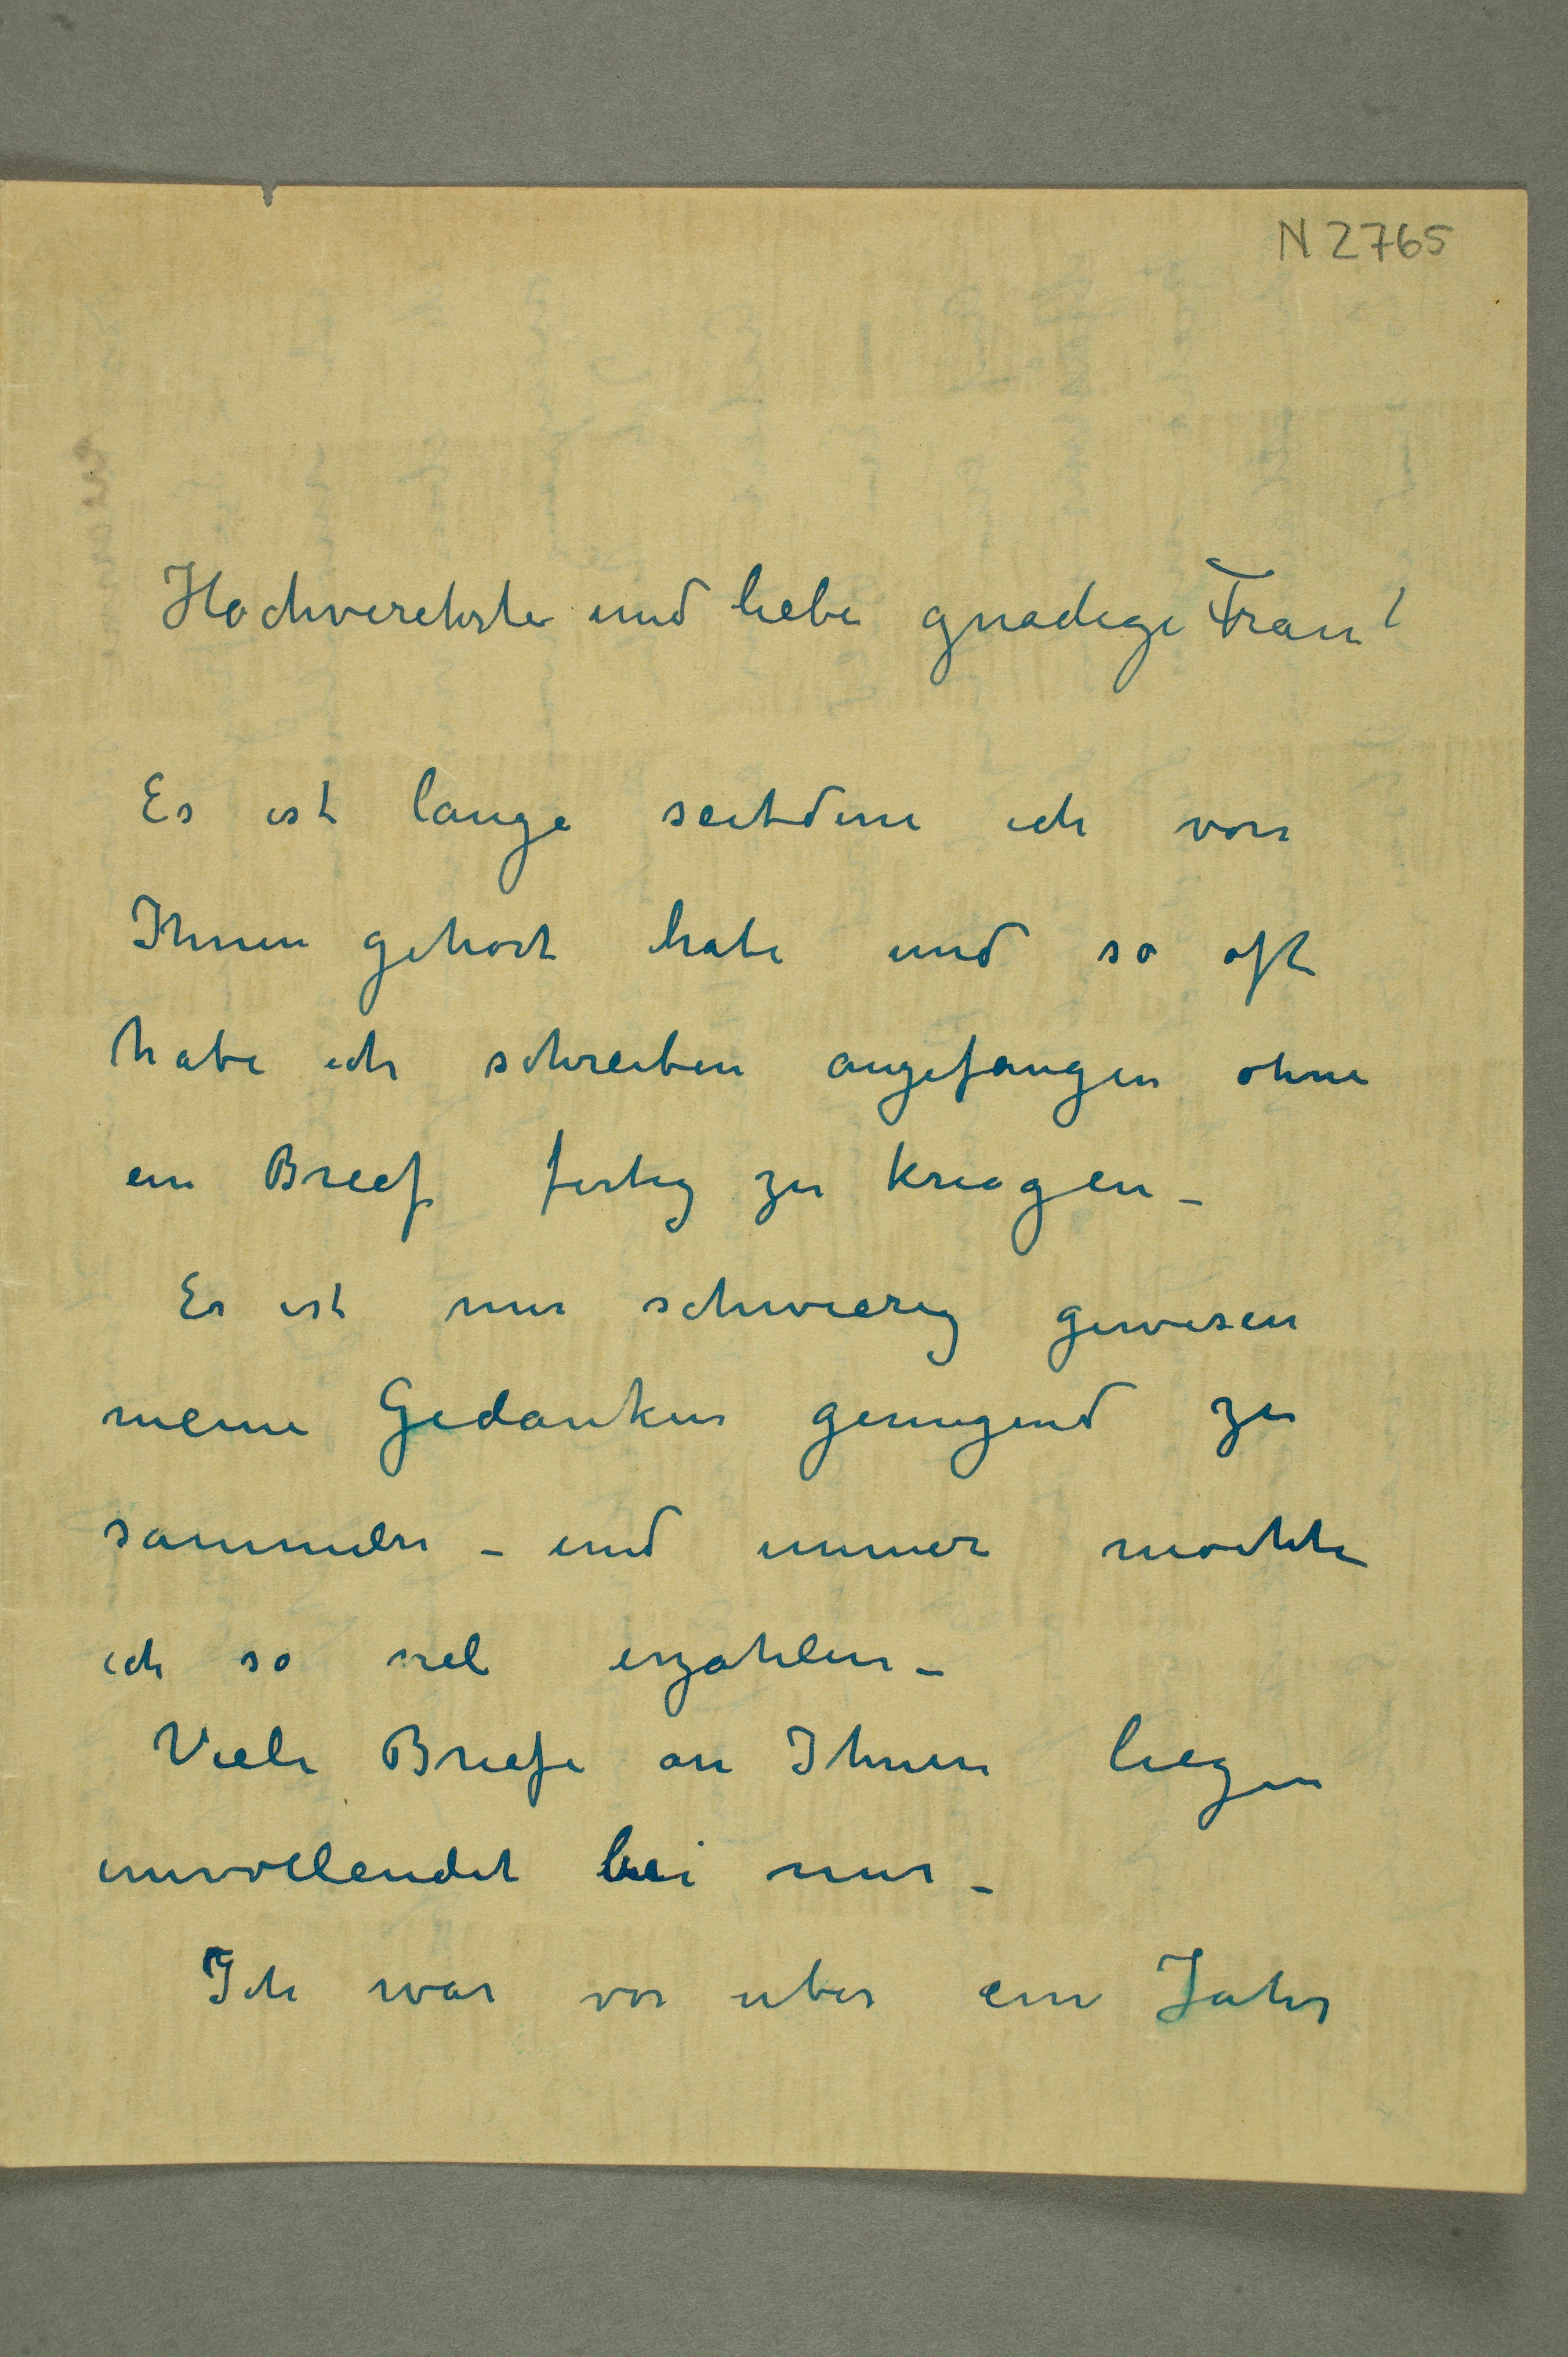 N 2765
Hochverehrte und liebe gnadige Frau!
Es ist lange seitdem ich von
Ihnen gehort habe und so oft
habe ich schreiben angefangen ohne
ein Brief fertig zu kriegen –
Es ist mir schwierig gewesen
meine Gedanken genugend zu
sammeln – und immer mochte
ich so viel erzahlen –
Viele Briefe an Ihnen liegen
unvollendet bei mir –
Ich war vor uber ein Jahr